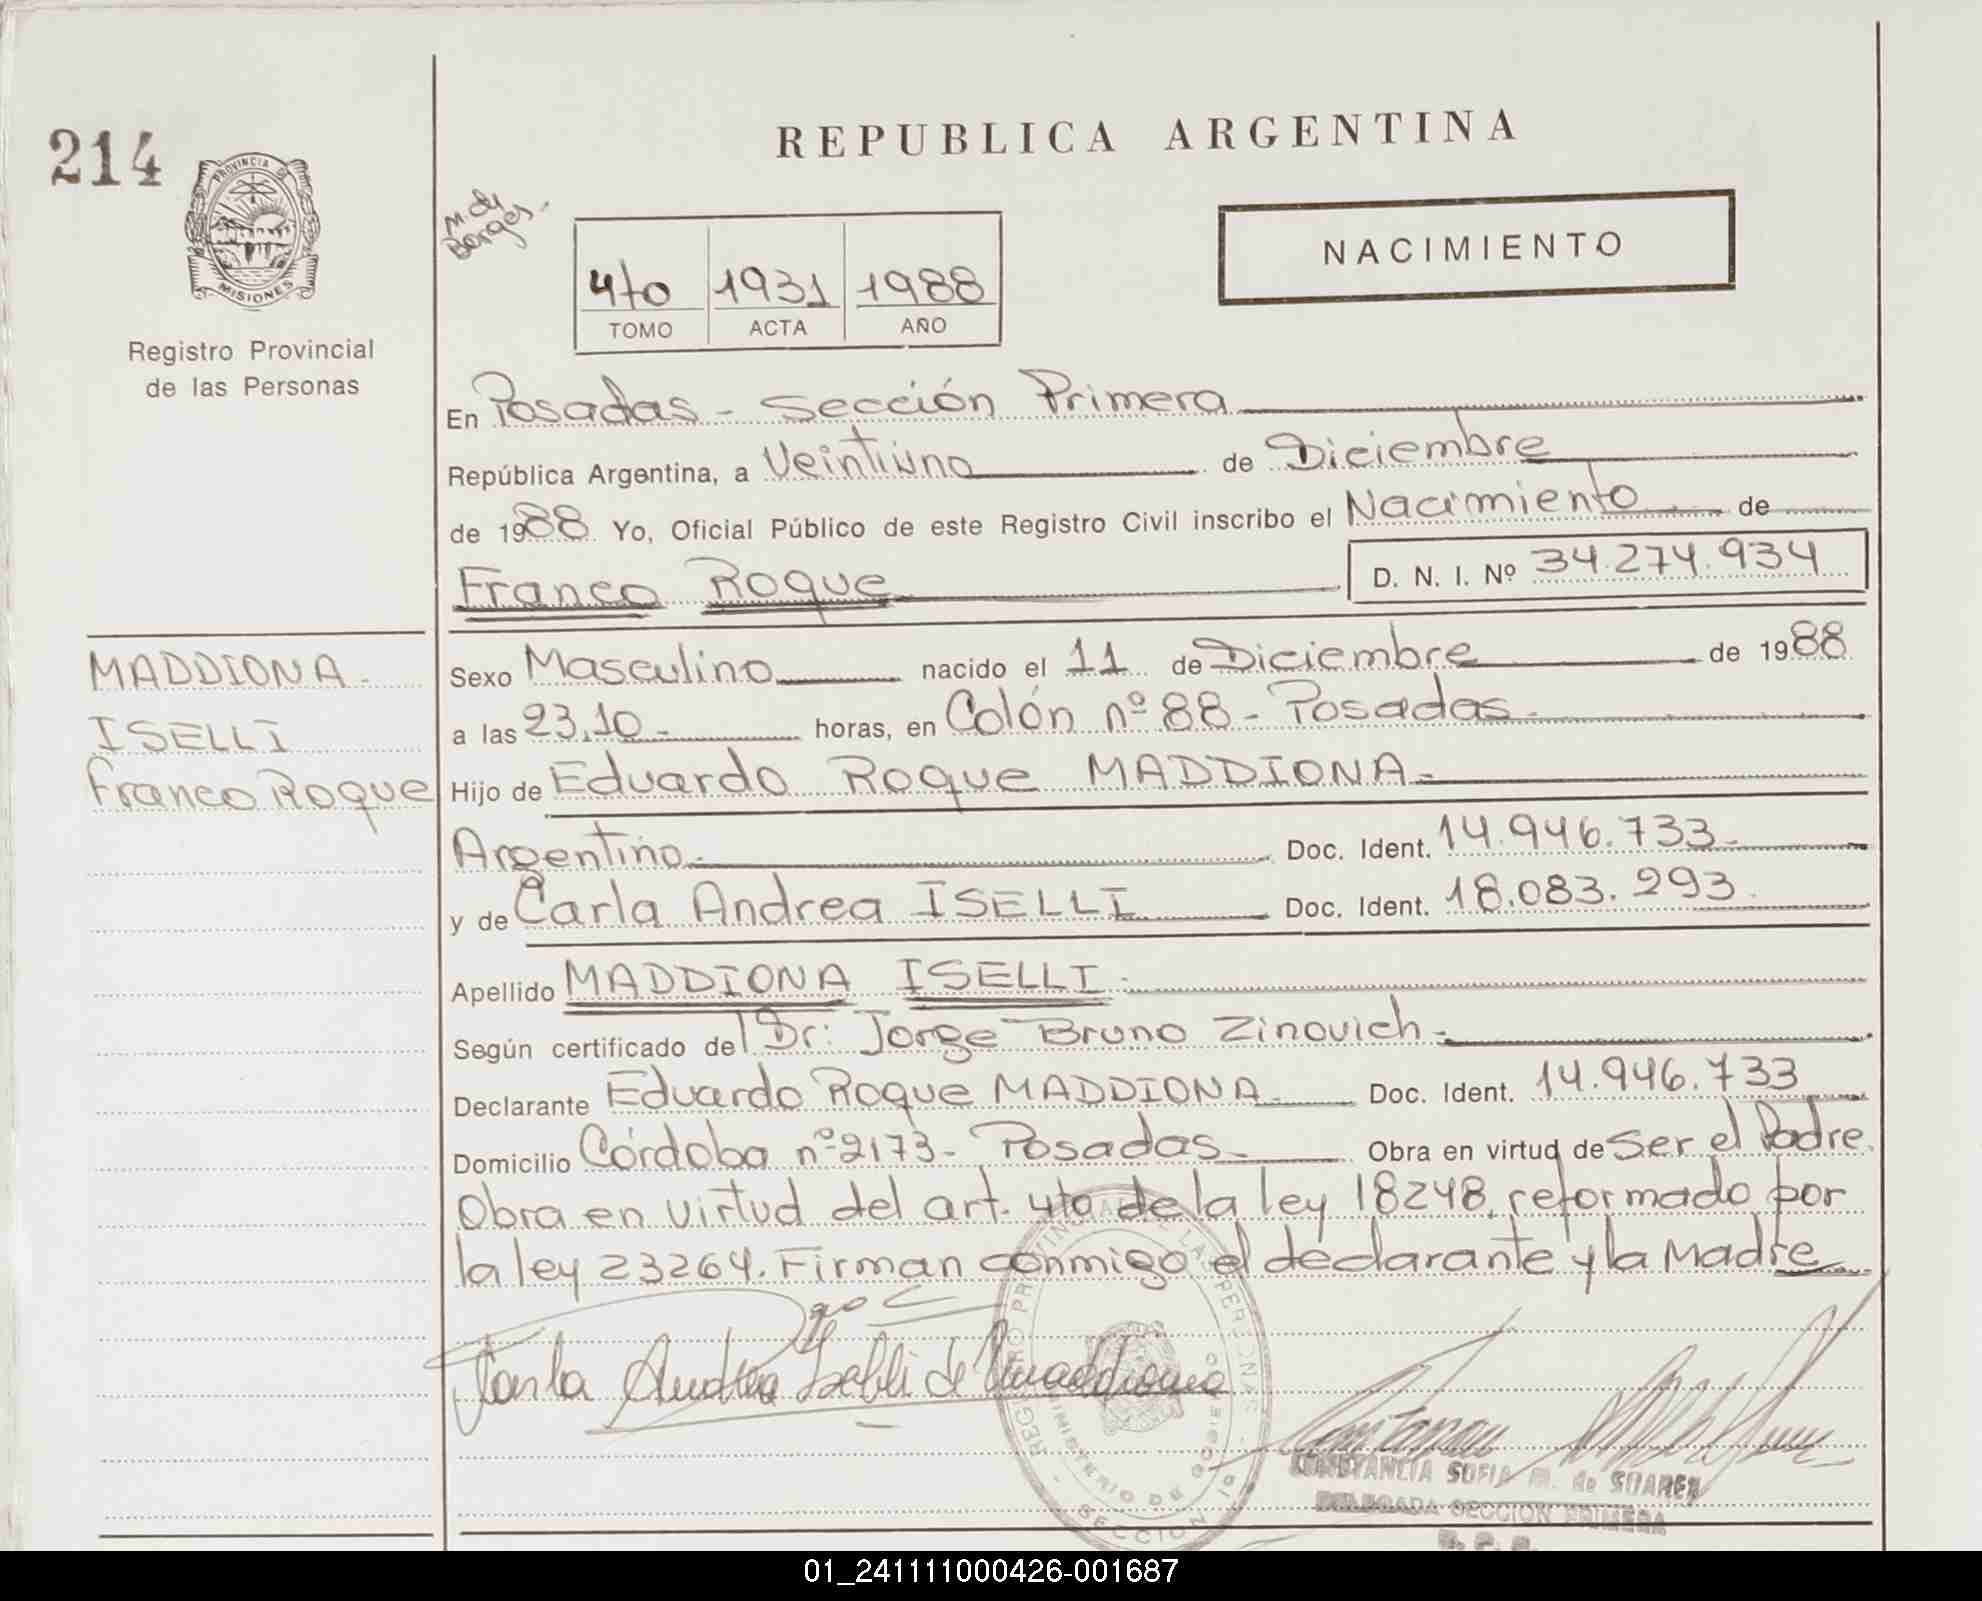 214
PROVINCIA DE
MISIONES
Registro Provincial
de las Personas
REPUBLICA ARGENTINA
NACIMIENTO
4to 1931 1988
TOMO ACTA AÑO
En Posadas - Sección Primera
República Argentina, a Veintiuno de Diciembre
de 1988 Yo, Oficial Público de este Registro Civil inscribo el Nacimiento de
Franco Roque D. N. I. Nº 34.274.934
MADDIONA -
ISELLI
Franco Roque
Sexo Masculino nacido el 11 de Diciembre de 1988
a las 23,10 - horas, en Colón nº 88 - Posadas -
Hijo de Eduardo Roque MADDIONA -
Argentino - Doc. Ident. 14.946.733 -
y de Carla Andrea ISELLI Doc. Ident. 18.083.293 -
Apellido MADDIONA ISELLI -
Según certificado del Dr: Jorge Bruno Zinovich -
Declarante Eduardo Roque MADDIONA - Doc. Ident. 14.946.733
Domicilio Córdoba nº 2173 - Posadas - Obra en virtud de Ser el Padre.
Obra en virtud del art. 4to de la ley 18248, reformado por
la ley 23264. Firman conmigo el declarante y la Madre
Carla Andrea Iselli de Maddiona
CONSTANCIA SOFIA M. de SUAREZ
DELEGADA SECCION PRIMERA
R. P. P.
01_241111000426-001687